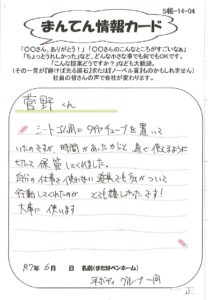 S帳-14-04
まんてん情報カード
「〇〇さん、ありがとう！」「〇〇さんのこんなところがすごいなぁ」
「ちょっとうれしかった」など、どんな小さな事でも何でもOKです。
「こんな提案どうですか？」なども大歓迎。
(その一言が『磨けば光る原石』または『ノーベル賞』ものかもしれません)
社員の皆さんの声で会社が変わります。
菅野くん
シート以前に
チューブを置いて
いたのですが、時間があったからと 直ぐ使えるように
切って保管してくれました。
自分の仕事で使わない道具でも気がついて
行動してくれたのが とても嬉しかったです！
大事に使います
R7年 6月 日 名前(またはペンネーム)
グループ一同